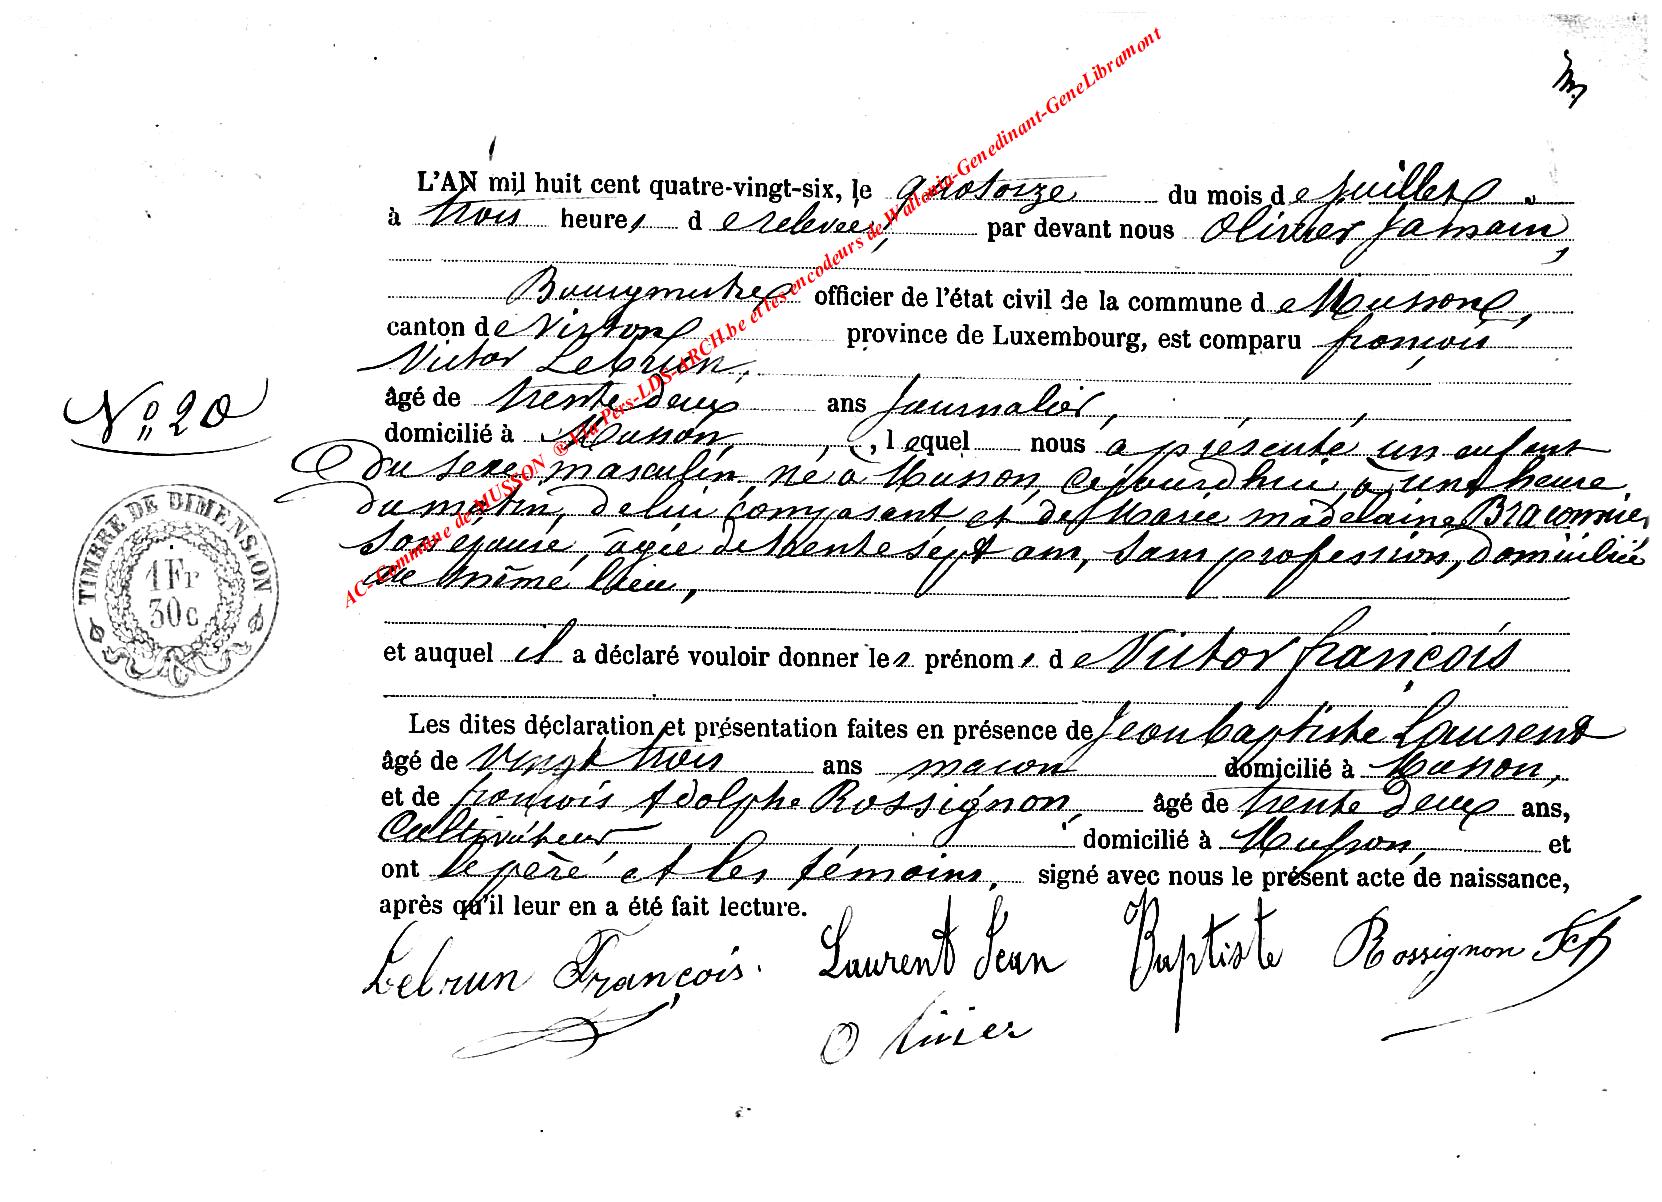 L'AN mil huit cent quatre-vingt-six, le quatorze du mois de juillet
à trois heures de relevée, par devant nous Olivier Jamain,
Bourgmestre officier de l'état civil de la commune de Musson,
canton de Virton province de Luxembourg, est comparu françois
Victor Lebrun,
âgé de trente deux ans Journalier,
domicilié à Musson, lequel nous a présenté un enfant
du sexe masculin, né à Musson, cejourd'hui à une heure
du matin, de lui comparant et de Marie madelaine Braconnier
son épouse, âgée de trente sept ans, sans profession, domiciliée
au même lieu,
et auquel il a déclaré vouloir donner les prénoms de Victor françois
Les dites déclaration et présentation faites en présence de Jean baptiste Laurent
âgé de vingt trois ans maçon domicilié à Musson,
et de françois Adolphe Rossignon, âgé de trente deux ans,
Cultivateur domicilié à Musson, et
ont le père et les témoins, signé avec nous le présent acte de naissance,
après qu'il leur en a été fait lecture.
Lebrun François. Laurent Jean Baptiste Rossignon
Olivier
No 20
TIMBRE DE DIMENSION
1 Fr
30 c
AC-Commune de MUSSON ® Via Pers-LDS-ARCH.be et les encodeurs de Wallonia-Genedinant-GeneLibramont